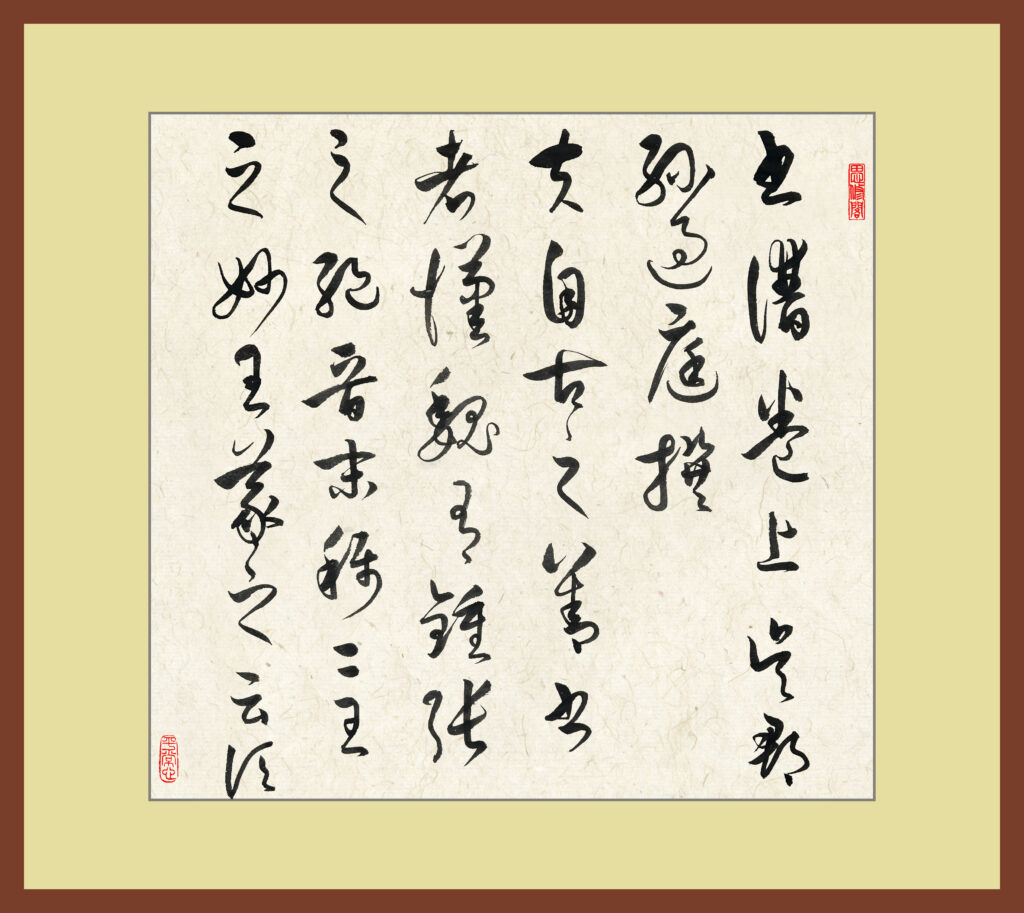 思修閣
書譜卷上吳郡
孫過庭撰
夫自古之善書
者漢魏有鍾張
之絕晉末稱二王
之妙王羲之云頃
平常心